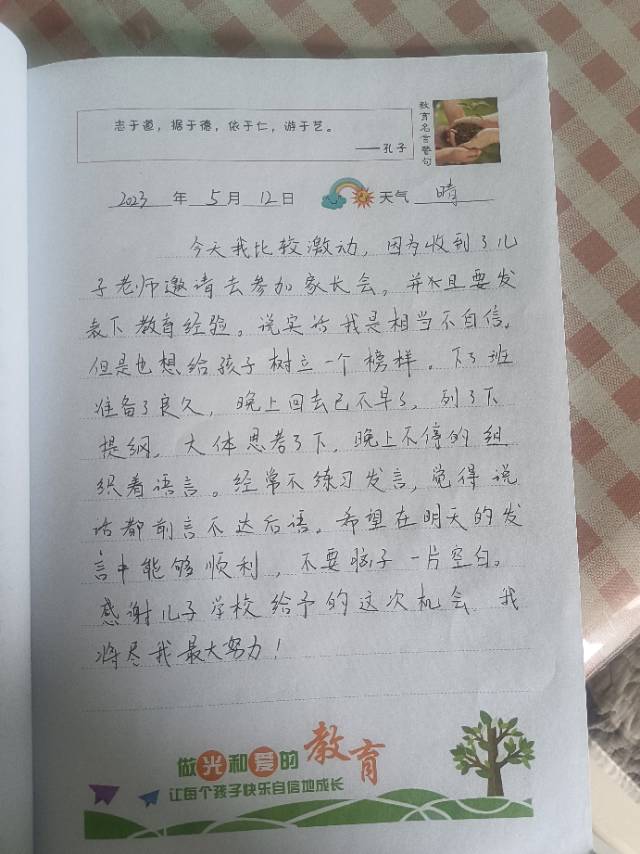 志于道，据于德，依于仁，游于艺。
——孔子
教育名言警句
2023年5月12日 天气 晴
今天我比较激动，因为收到了儿
子老师邀请去参加家长会，并且要发
表下教育经验。说实话我是相当不自信。
但是也想给孩子树立一个榜样。下了班
准备了良久，晚上回去已不早了，列了下
提纲，大体思考了下，晚上不停的组
织着语言。经常不练习发言，觉得说
话都前言不达后语。希望在明天的发
言中能够顺利，不要脑子一片空白。
感谢儿子学校给予的这次机会 我
将尽我最大努力！
做光和爱的教育
让每个孩子快乐自信地成长